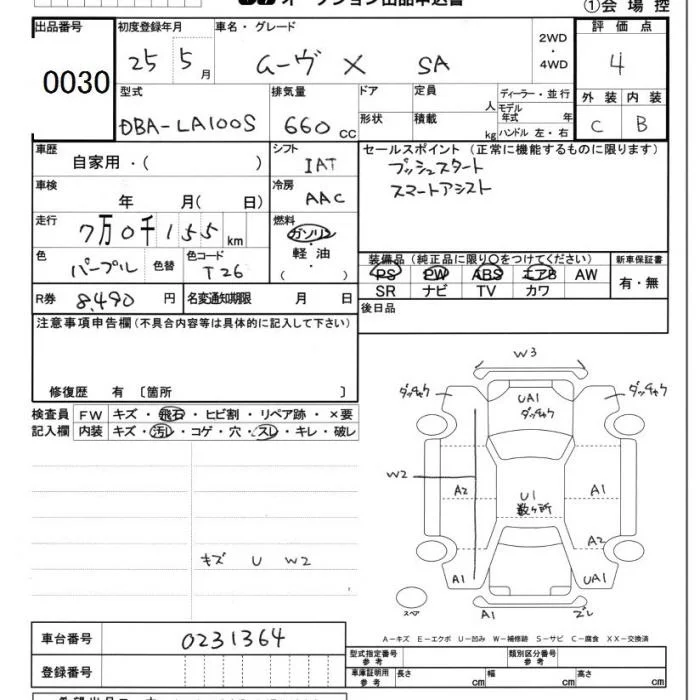 オークション出品申込書
①会場控
出品番号 初度登録年月 車名・グレード 評価点
0030 25 5月 ムーヴ X SA 2WD・4WD 4
型式 排気量 ドア 定員 人 ディーラー・並行 外装 内装
DBA-LA100S 660cc 形状 積載 kg モデル年式 年 ハンドル 左・右 C B
車歴 自家用・( ) シフト IAT セールスポイント(正常に機能するものに限ります)
プッシュスタート
スマートアシスト
車検 年 月( 日) 冷房 AAC
走行 7万0千155km 燃料 ガソリン・軽油・( )
色 パープル 色替 色コード T26 装備品(純正品に限り○をつけてください) 新車保証書
PS PW ABS エアB AW 有・無
SR ナビ TV カワ
R券 8,490円 名変通知期限 月 日 後日品
注意事項申告欄(不具合内容等は具体的に記入して下さい)
修復歴 有〔箇所 〕
検査員 FW キズ・飛石・ヒビ割・リペア跡・×要
記入欄 内装 キズ・汚レ・コゲ・穴・スレ・キレ・破レ
W3
ダッチャク UA1 ダッチャク ダッチャク
W2 A2 U1 数ヶ所 A1
A2
A1 UA1
スペア A1 ズレ
キズ U W2
A-キズ E-エクボ U-凹み W-補修跡 S-サビ C-腐食 XX-交換済
車台番号 0231364
型式指定番号 参考 類別区分番号 参考
登録番号 車庫証明用 参考 長さ cm 幅 cm 高さ cm